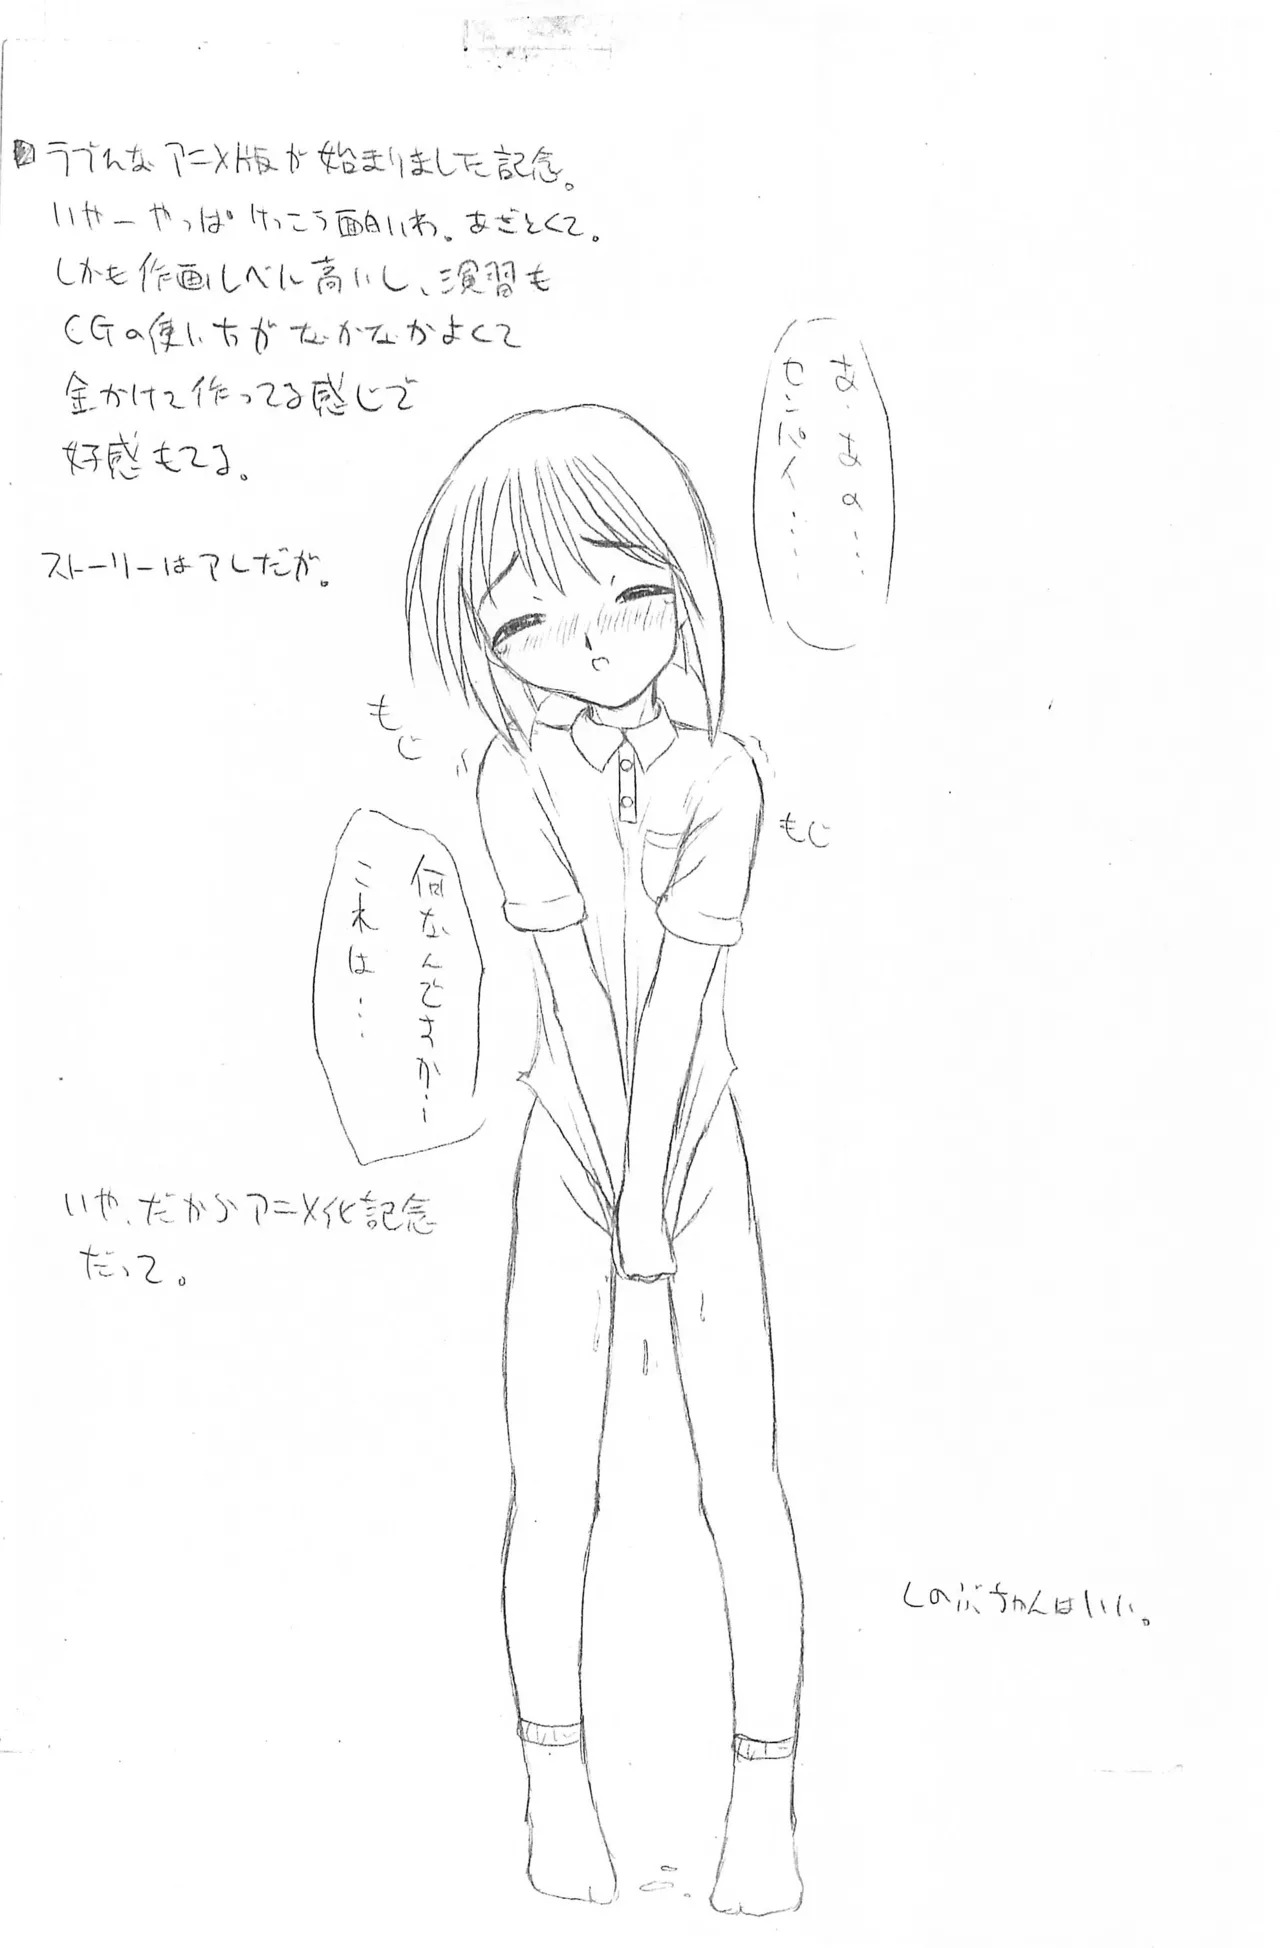 ラブひな アニメ版が始まりました記念。
いやーやっぱけっこう面白いわ。あざとくて。
しかも作画レベル高いし、演習も
CGの使い方がなかなかよくて
金かけて作ってる感じで
好感もてる。
ストーリーはアレだが。
あ、あの……
センパイ……
もじ
もじ
何なんですか…
これは…
いや、だからアニメ化記念
だって。
しのぶちゃんはいい。